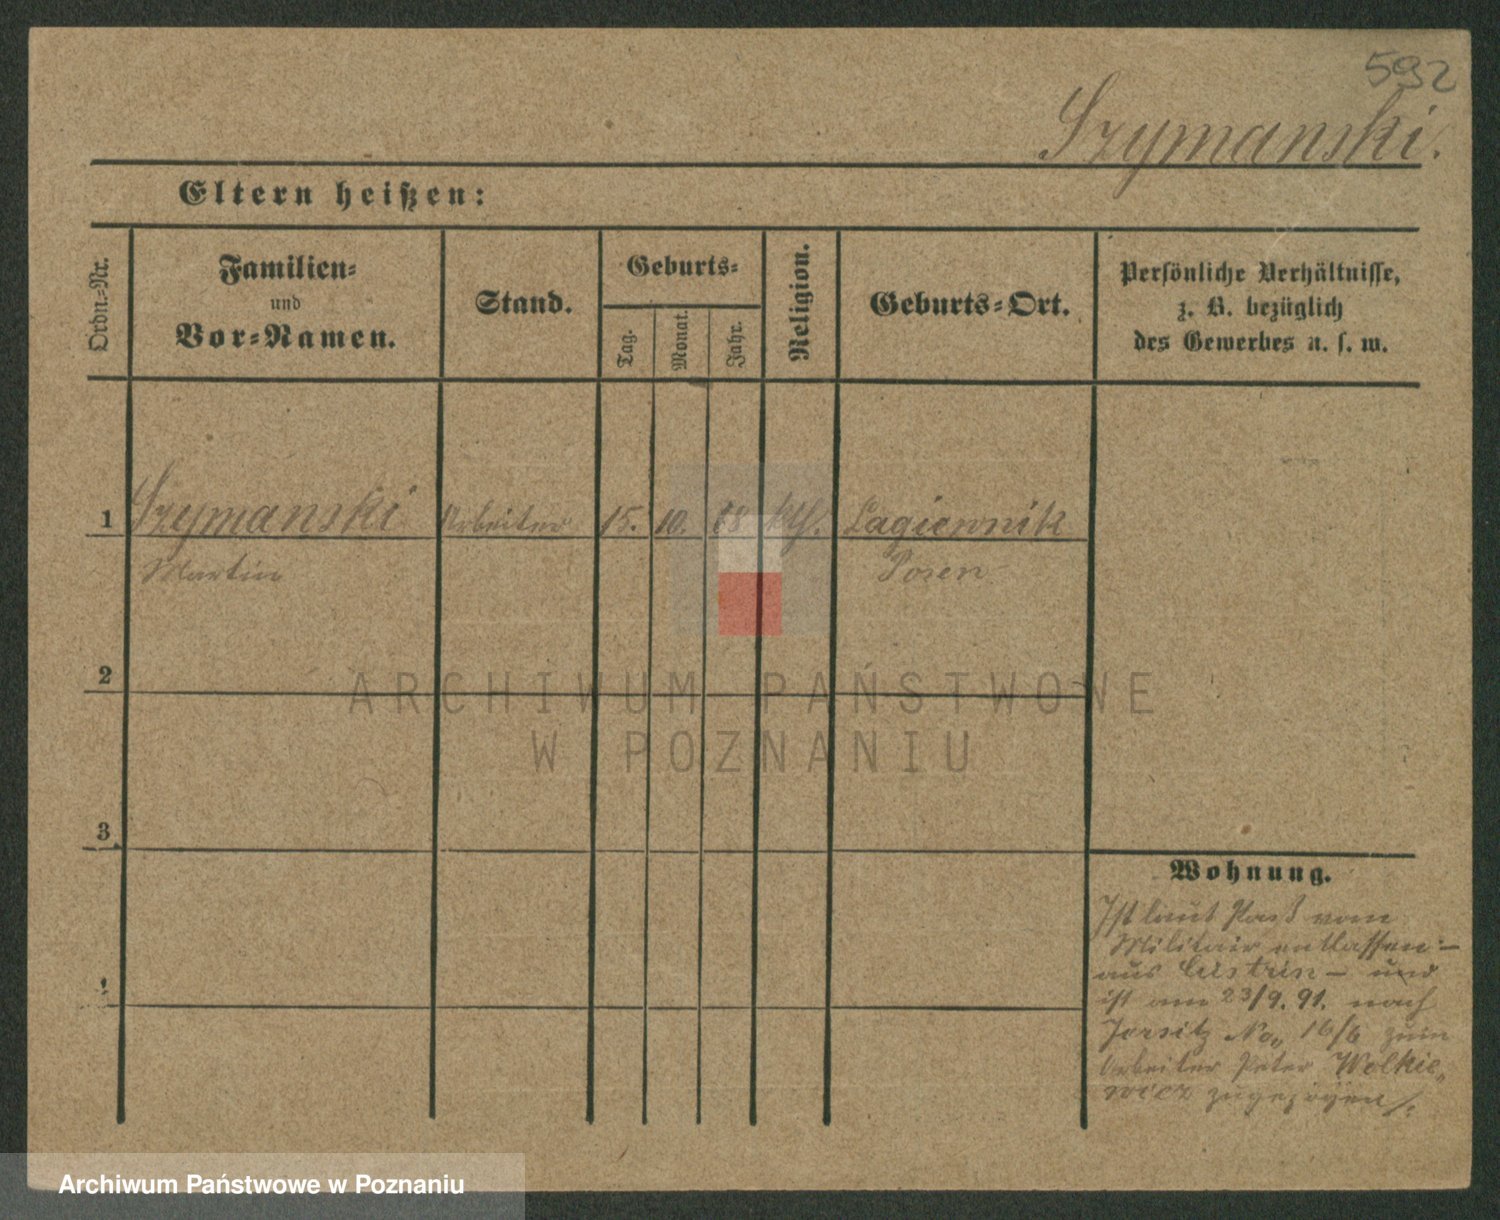 592
Szymanski.
Eltern heißen:
Ordn.-Nr.
Familien-
und
Vor-Namen.
Stand.
Geburts-
Tag.
Monat.
Jahr.
Religion.
Geburts-Ort.
Persönliche Verhältnisse,
z. B. bezüglich
des Gewerbes u. s. w.
1 Szymanski Arbeiter 15. 10. 68 kth. Lagiewnik
Martin Posen
2
3
Wohnung.
Ist laut Paß vom
Militair entlassen -
aus Cüstrin - und
ist am 23/9. 91. nach
Jersitz No. 16/6 zum
Arbeiter Peter Wolkie-
wicz zugezogen.
ARCHIWUM PAŃSTWOWE
W POZNANIU
Archiwum Państwowe w Poznaniu